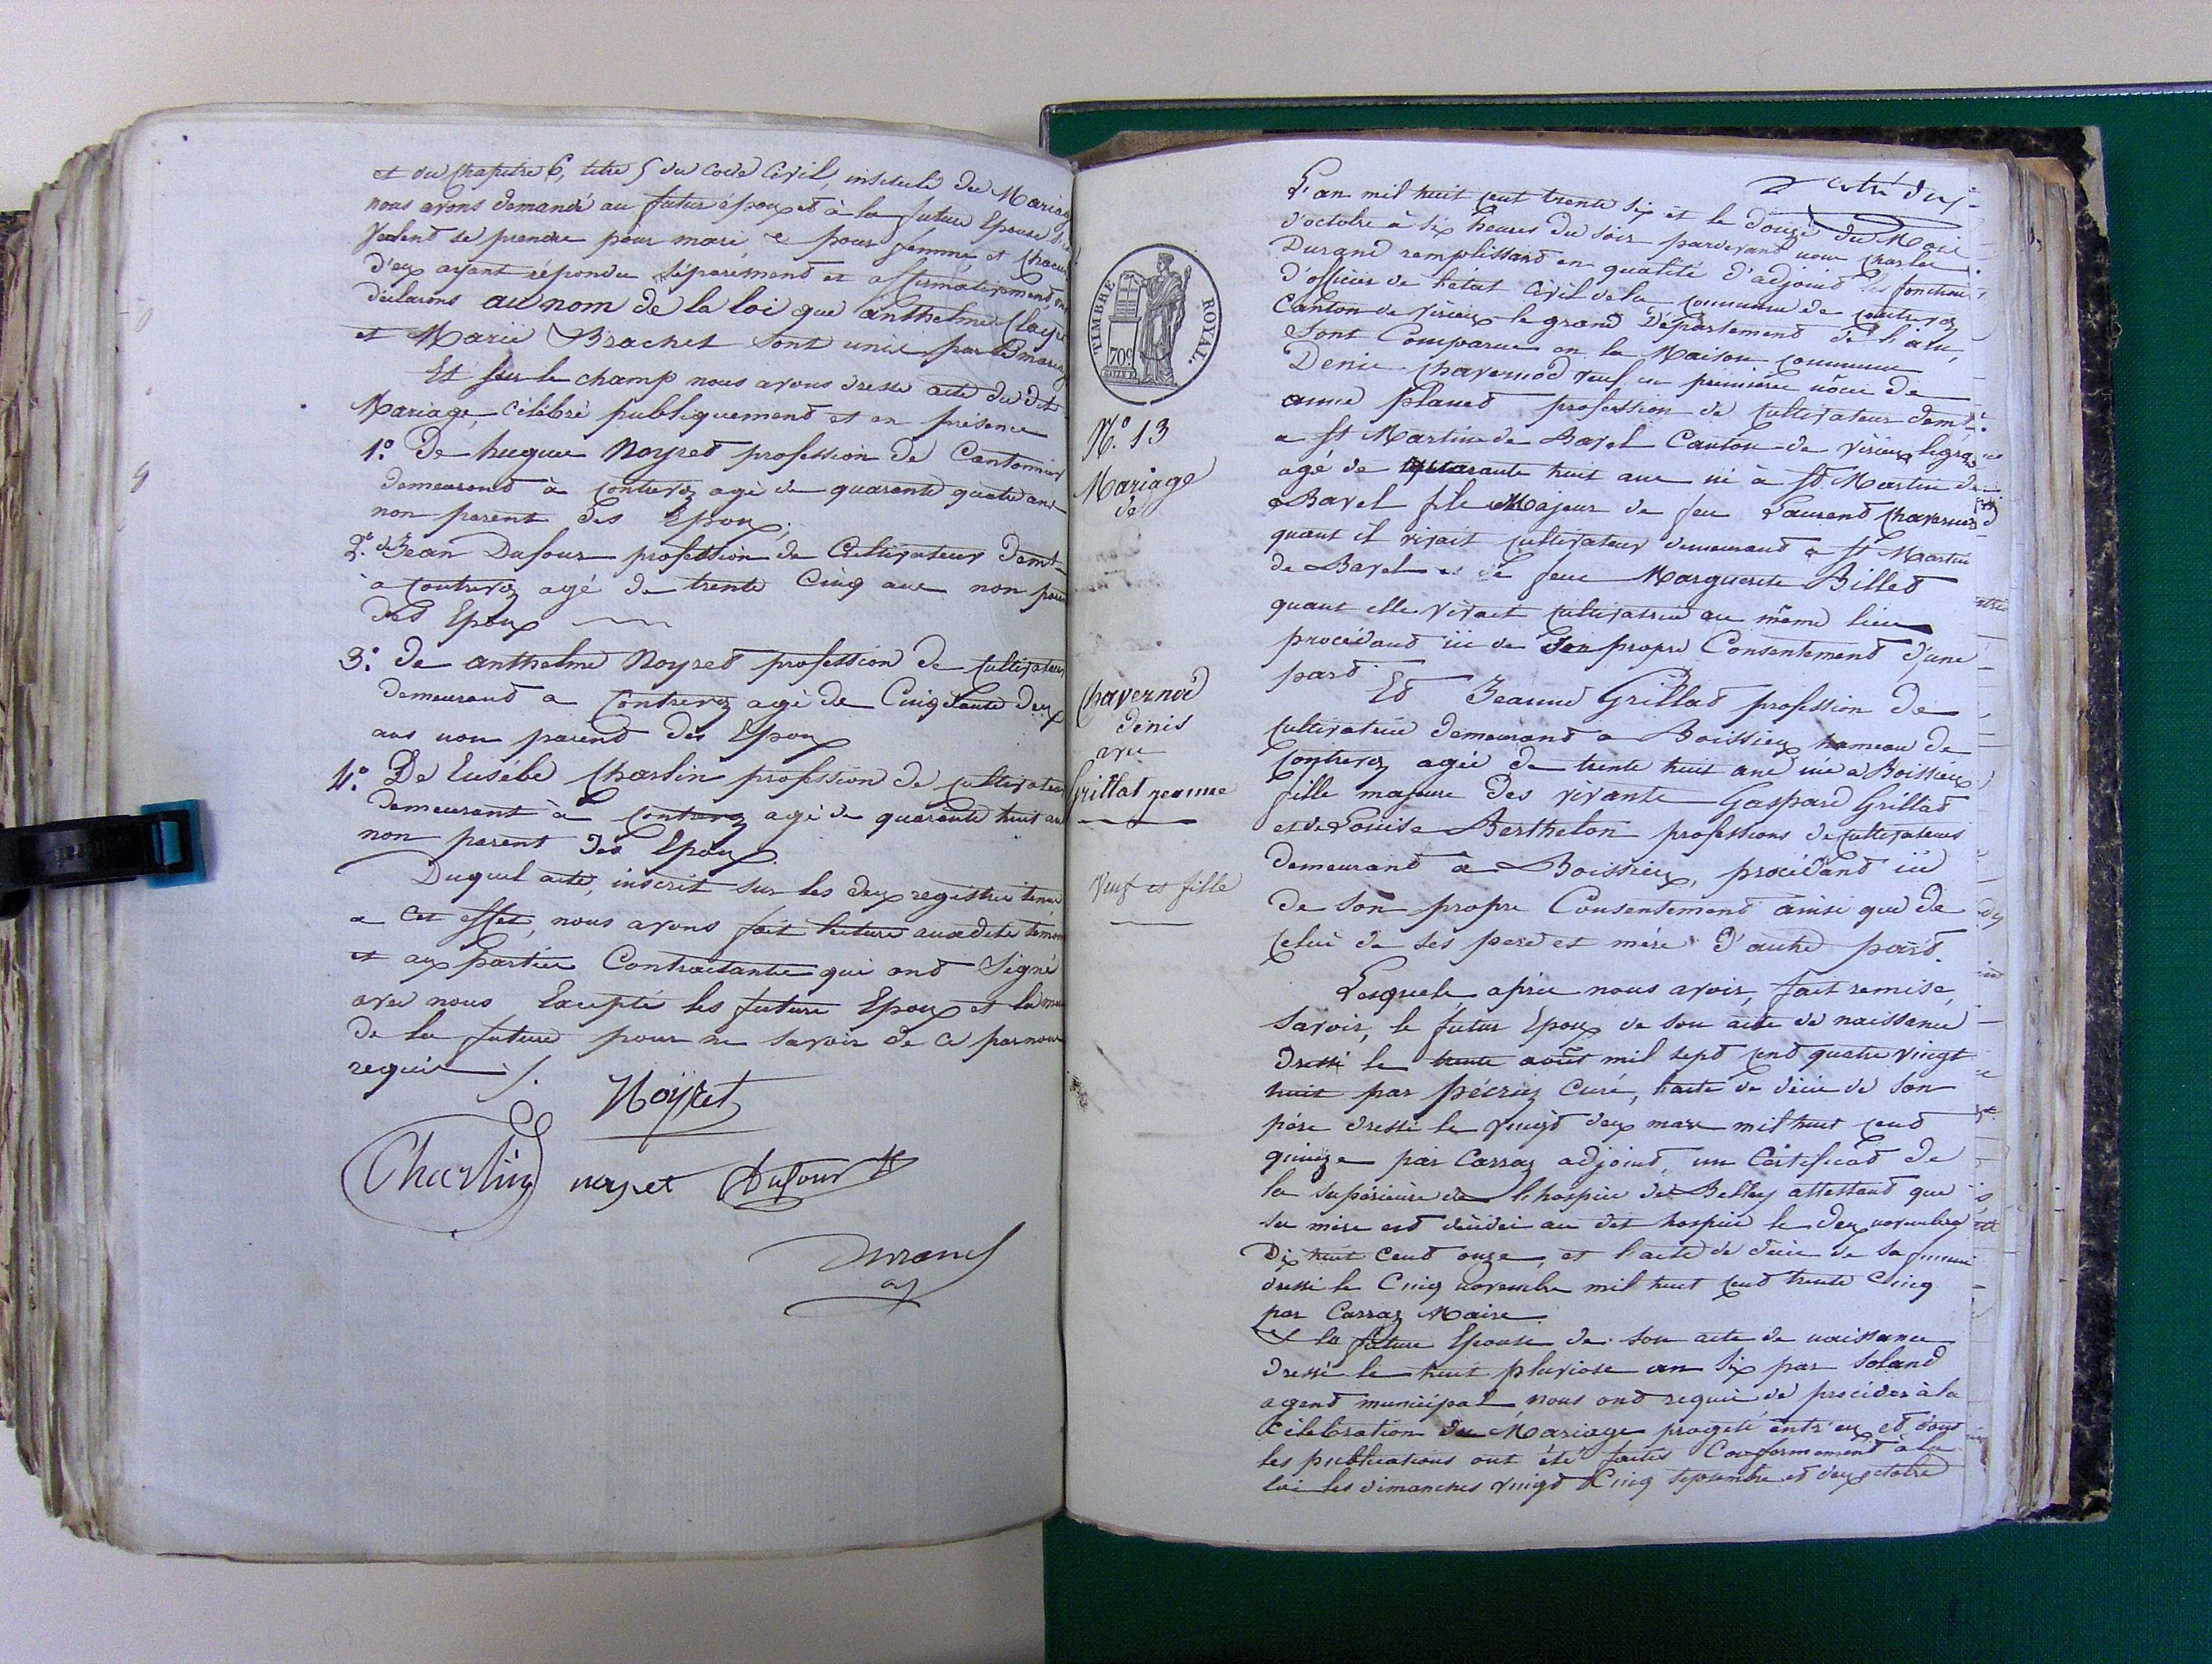 et du Chapitre 6, titre 5 du code Civil, intitulé du Mariage
nous avons demandé au futur époux et à la future Epouse
Veulent se prendre pour mari, e pour femme, et Chacun
d'eux ayant répondu séparément et affirmativement,
déclarons au nom de la loi que anthelme Claye
et Marie Brachet sont unis par le mariage
Et sur le champ nous avons dressé acte du dit
Mariage, célébré publiquement et en présence
1.° De hugue Noyret profession de Cantonnier
demeurand à Contrevoz agé de quarante quatre ans
non parent des Epoux;
2.° de Jean Dufour profession de Cultivateur demt
à Contrevoz agé de trente Cinq ans non parent
des Epoux
3.° de anthelme Noyret profession de Cultivateur
demeurand a Contrevoz agé de Cinq[uante] deux
ans non parend des Epoux
4.° De Eusèbe Charlin profession de Cultivateur
demeurant à Contrevoz agé de quarante huit ans
non parent des Epoux.
Duquel acte, inscrit sur les deux registres tenus
a cet effet, nous avons fait lecture auxdits témoins
et aux parties Contractantes qui ond Signé
avec nous Excepté les futurs Epoux et la mère
de la future pour ne savoir de ce par nous
requis /.
Noyret
Charlin noyret Dufour
Durand
aj
L'an mil huit cent trente six et le douze du Mois
d'octobre à six heures du soir pardevant nous Charles
Durand remplissant en qualité d'adjoint les fonctions
d'officier de l'état Civil de la Commune de Contrevoz
Canton de Virieux le grand Département de l'ain,
Sont Comparus en la Maison commune
Denis Chavernod veuf en première noce de
anne Planet profession de Cultivateur demt
a St Martin de Bavel Canton de Virieux legrand
agé de quarante huit ans né à St Martin de
Bavel fils Majeur de feu Laurend Chavernod
quant il vivait Cultivateur demeurand a St Martin
de Bavel et de feue Marguerite Billed
quant elle vivait Cultivatrice au même lieu
procédand ici de son propre Consentement d'une
pard
Ed Jeanne Grillad profession de
Cultivatrice demeurand a Boissieu hameau de
Contrevoz agée de trente huit ans née a Boissieu
fille majeure des vivants Gaspard Grillad
et de Louise Berthelon professions de Cultivateurs
demeurand a Boissieu, procédand ici
de son propre Consentement ainsi que de
Celui de ses pere et mère d'autre pard.
Lesquels, après nous avoir fait remise,
Savoir, le futur Epoux de son acte de naissance
dressé le trente août mil sept cend quatre vingt
huit par Pécriez Curé, l'acte de décès de son
père dressé le vingt deux mars mil huit cend
quinze par Carraz adjoint, un Certificat de
la supérieure de l'hospice de Belley attestand que
sa mère est décédée au dit hospice le deux novembre
Dix huit Cend onze, et l'acte de décès de sa femme
dressé le Cinq novembre mil huit cend trente Cinq
par Carraz Maire.
Et la future Epouse de son acte de naissance
dressé le huit pluviose an six par Soland
agend municipal, nous ond requis de procéder à la
Célébration du Mariage projeté entr'eux et dont
les publications ont été faites Conformément à la
loi les dimanches vingt Cinq Septembre et deux octobre
TIMBRE ROYAL.
70c
N.° 13
Mariage
de
Chavernod
denis
avec
Grillat jeanne
Veuf et fille